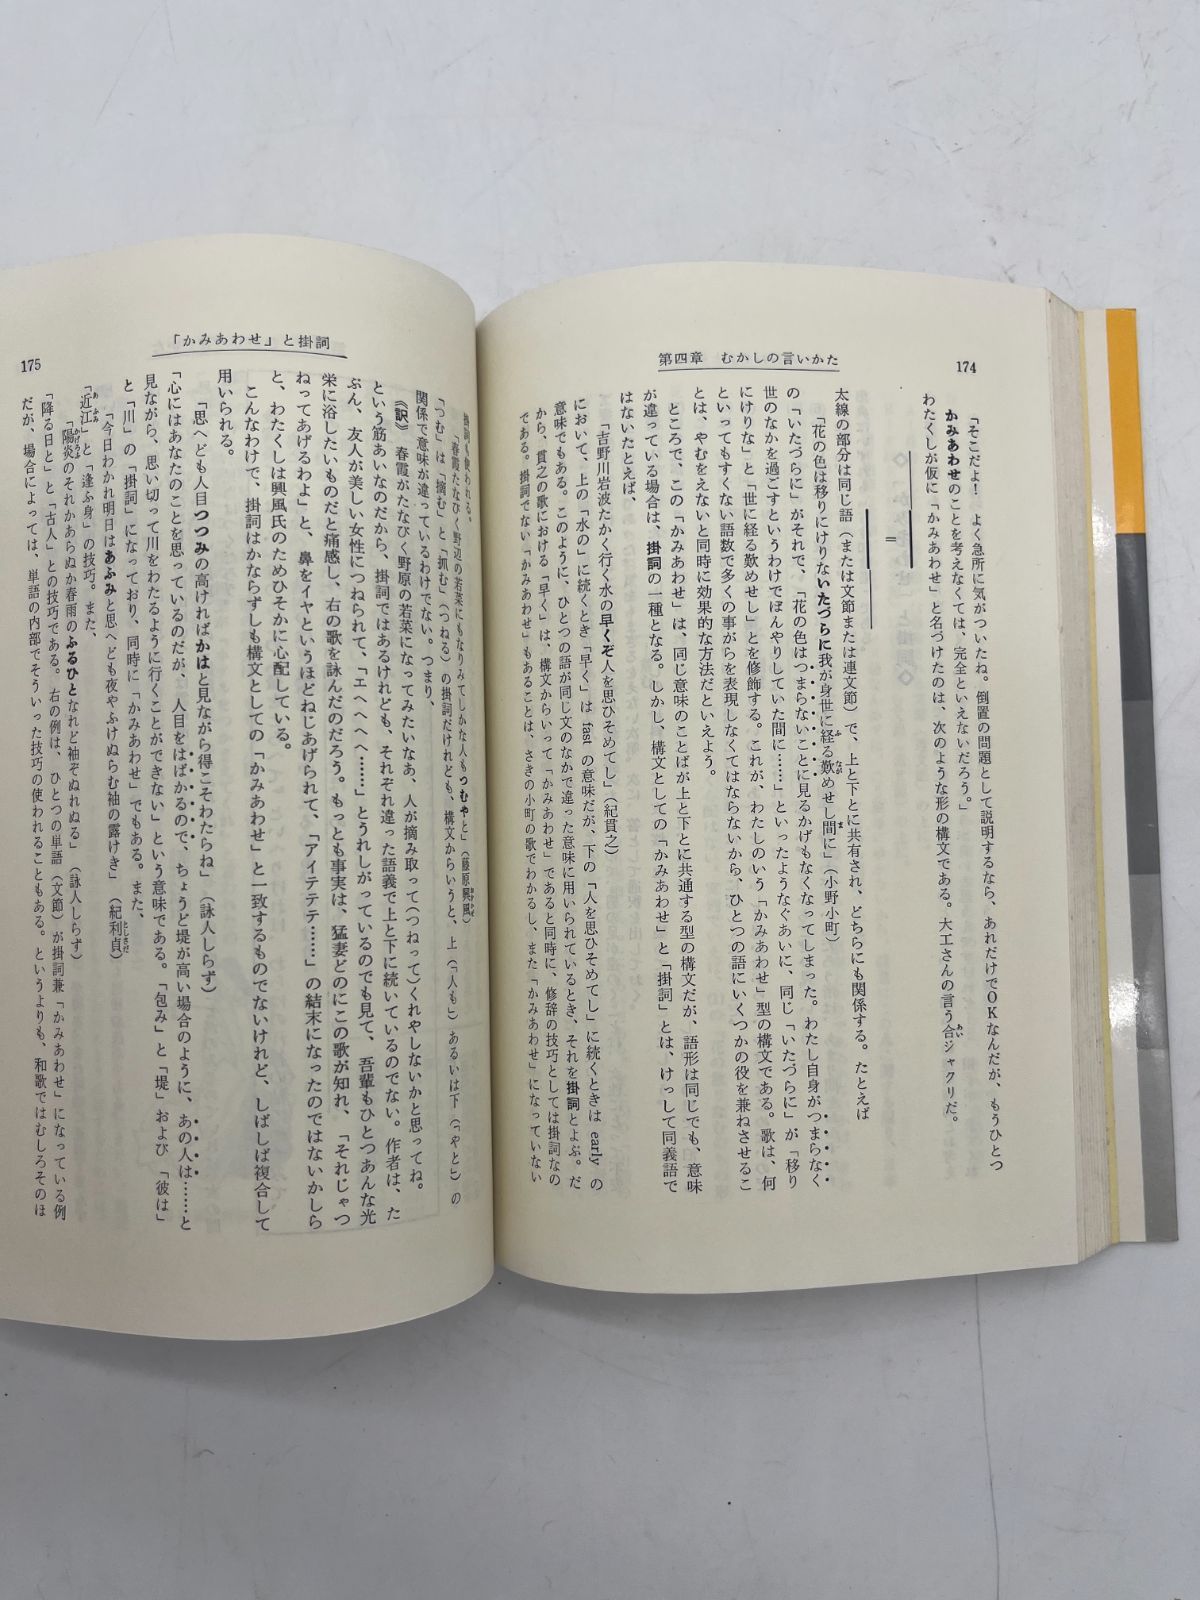 174
第四章　むかしの言いかた
「そこだよ！　よく急所に気がついたね。倒置の問題として説明するなら、あれだけでOKなんだが、もうひとつ
かみあわせのことを考えなくては、完全といえないだろう。」
わたくしが仮に「かみあわせ」と名づけたのは、次のような形の構文である。大工さんの言う合ジャクリだ。
＝
太線の部分は同じ語（または文節または連文節）で、上と下とに共有され、どちらにも関係する。たとえば
「花の色は移りにけりないたづらに我が身世に経る眺めせし間に」（小野小町）
の「いたづらに」がそれで、「花の色はつまらないことに見るかげもなくなってしまった。わたし自身がつまらなく
世のなかを過ごすというわけでぼんやりしていた間に……」といったようなぐあいに、同じ「いたづらに」が「移り
にけりな」と「世に経る眺めせし」とを修飾する。これが、わたしのいう「かみあわせ」型の構文である。歌は、何
といってもすくない語数で多くの事がらを表現しなくてはならないから、ひとつの語にいくつかの役を兼ねさせるこ
とは、やむをえないと同時に効果的な方法だといえよう。
ところで、この「かみあわせ」は、同じ意味のことばが上と下とに共通する型の構文だが、語形は同じでも、意味
が違っている場合は、掛詞の一種となる。しかし、構文としての「かみあわせ」と「掛詞」とは、けっして同義語で
はない。たとえば、
「吉野川岩波たかく行く水の早くぞ人を思ひそめてし」（紀貫之）
において、上の「水の」に続くとき「早く」は fast の意味だが、下の「人を思ひそめてし」に続くときは early の
意味でもある。このように、ひとつの語が同じ文のなかで違った意味に用いられているとき、それを掛詞とよぶ。だ
から、貫之の歌における「早く」は、構文からいって「かみあわせ」であると同時に、修辞の技巧としては掛詞なの
である。掛詞でない「かみあわせ」もあることは、さきの小町の歌でわかるし、また「かみあわせ」になっていない
175
「かみあわせ」と掛詞
掛詞も使われる。
「春霞たなびく野辺の若菜にもなりみてしかな人もつむやと」（藤原興風）
「つむ」は「摘む」と「抓む」（つねる）の掛詞だけれども、構文からいうと、上（「人も」）あるいは下（「やと」）の
関係で意味が違っているわけでない。つまり、
《訳》　春霞がたなびく野原の若菜になってみたいなあ、人が摘み取って（つねって）くれやしないかと思ってね。
という筋あいなのだから、掛詞ではあるけれども、それぞれ違った語義で上と下に続いているのでない。作者は、た
ぶん、友人が美しい女性につねられて、「エヘヘヘヘ……」とうれしがっているのでも見て、吾輩もひとつあんな光
栄に浴したいものだと痛感し、右の歌を詠んだのだろう。もっとも事実は、猛妻どのにこの歌が知れ、「それじゃつ
ねってあげるわよ」と、鼻をイヤというほどねじあげられて、「アイテテテ……」の結末になったのではないかしら
と、わたくしは興風氏のためひそかに心配している。
こんなわけで、掛詞はかならずしも構文としての「かみあわせ」と一致するものでないけれど、しばしば複合して
用いられる。
「思へども人目つつみの高ければかはと見ながら得こそわたらね」（詠人しらず）
「心にはあなたのことを思っているのだが、人目をはばかるので、ちょうど堤が高い場合のように、あの人は……と
見ながら、思い切って川をわたるように行くことができない」という意味である。「包み」と「堤」および「彼は」
と「川」の「掛詞」になっており、同時に「かみあわせ」でもある。また、
「今日わかれ明日はあふみと思へども夜やふけぬらむ袖の露けき」（紀利貞）
「近江」と「逢ふ身」の技巧。また、
「陽炎のそれかあらぬか春雨のふるひとなれば袖ぞぬれぬる」（詠人しらず）
「降る日と」と「古人」との技巧である。右の例は、ひとつの単語（文節）が掛詞兼「かみあわせ」になっている例
だが、場合によっては、単語の内部でそういった技巧の使われることもある。というよりも、和歌ではむしろそのほ